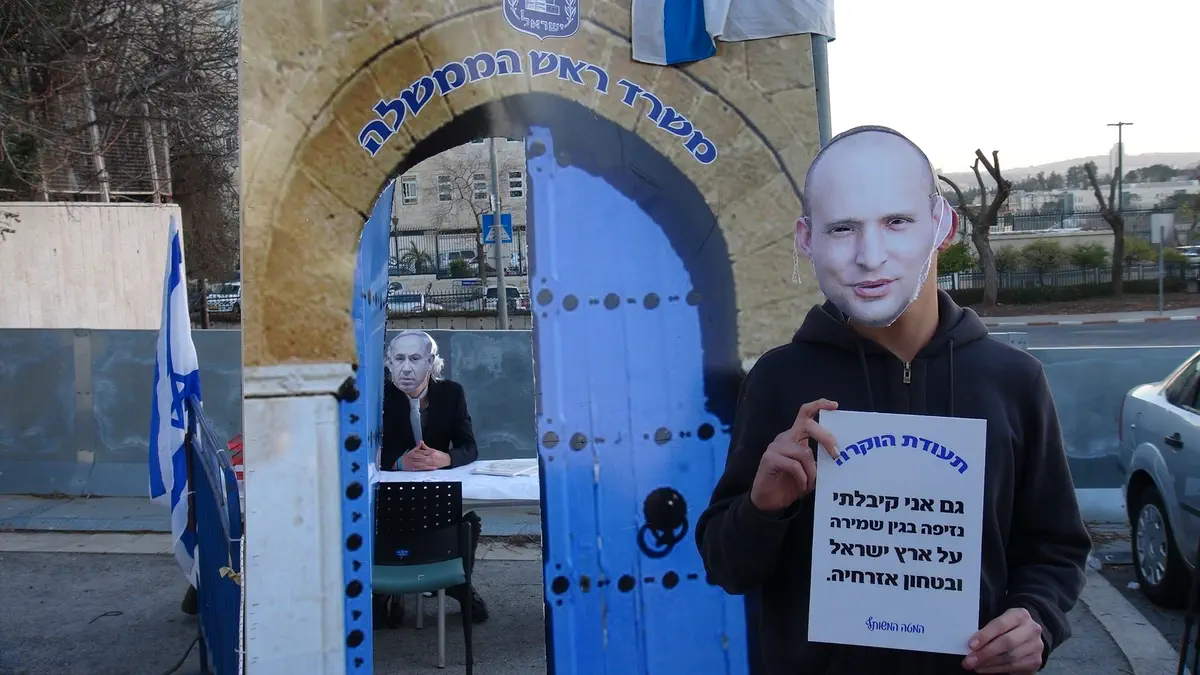 ישראל
משרד ראש הממשלה
תעודת הוקרה
גם אני קיבלתי
נזיפה בגין שמירה
על ארץ ישראל
ובטחון אזרחיה.
המטה המשותף